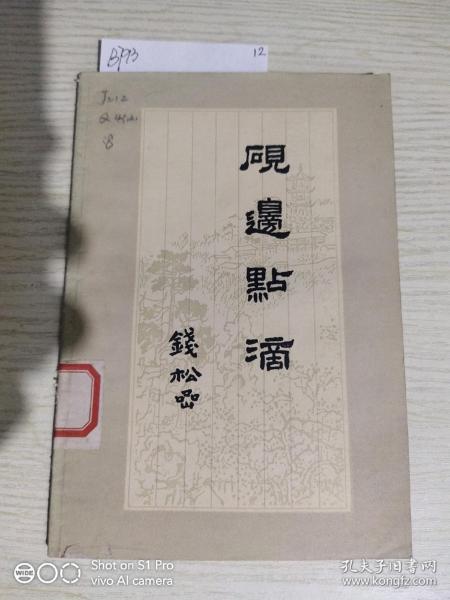 B993
12
J212
硯邊點滴
錢松嵒
WIDE
Shot on S1 Pro
vivo AI camera
孔夫子旧书网
www.kongfz.com